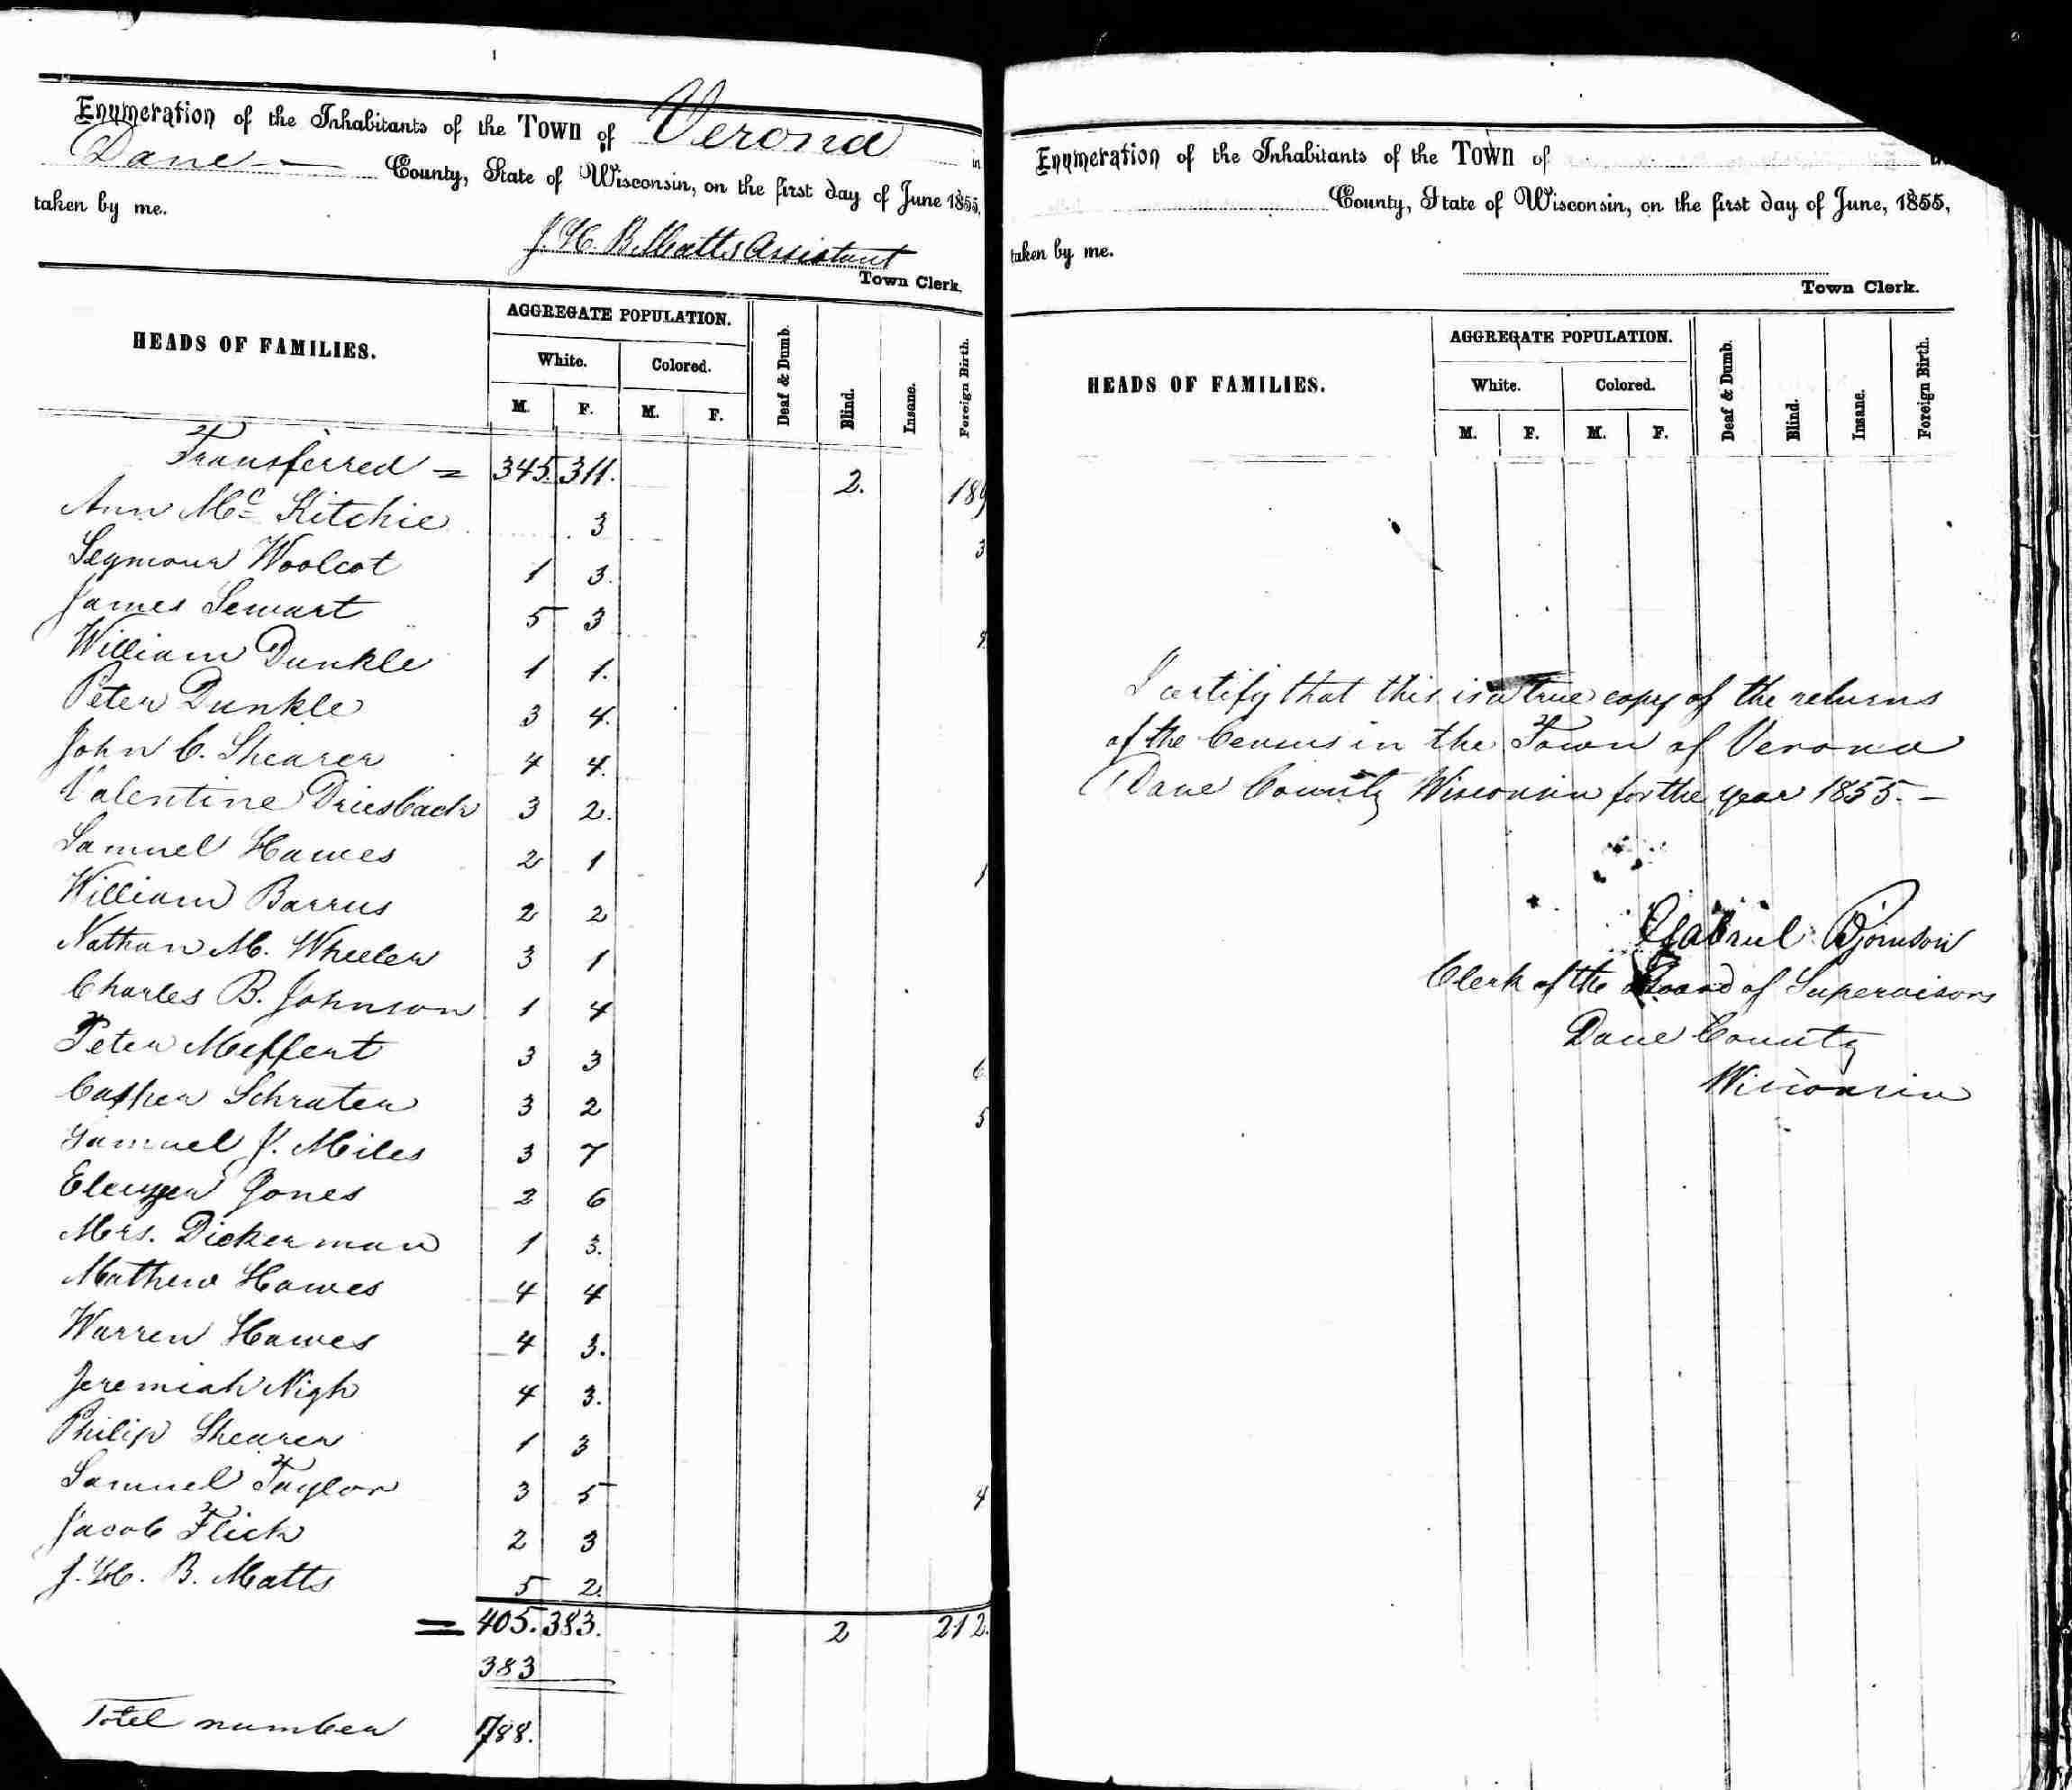 Enumeration of the Inhabitants of the Town of Verona in
Dane County, State of Wisconsin, on the first day of June 1855,
taken by me.
J. H. B. Matts Assistant
Town Clerk.
HEADS OF FAMILIES. AGGREGATE POPULATION. Deaf & Dumb. Blind. Insane. Foreign Birth.
White. Colored.
M. F. M. F.
Transferred = 345. 311. 2. 189
Ann Mc Kitchie 3 3
Seymour Woolcot 1 3.
James Sewart 5 3
William Dunkle 1 1.
Peter Dunkle 3 4.
John C. Shearer 4 4.
Valentine Driesbach 3 2.
Samuel Hawes 2 1 1
William Barrus 2 2
Nathan M. Wheeler 3 1
Charles B. Johnson 1 4
Peter Meffert 3 3 6
Casper Schrater 3 2 5
Samuel J. Miles 3 7
Jones 2 6
Mrs. Dickerman 1 3.
Mathew Hawes 4 4
Warren Hawes 4 3.
Jeremiah Nigh 4 3.
Philip Shearer 1 3
Samuel Taylor 3 5 4
Jacob Flick 2 3
J. H. B. Matts 5 2.
= 405. 383. 2 212.
383
Total number 788.
Enumeration of the Inhabitants of the Town of in
County, State of Wisconsin, on the first day of June, 1855,
taken by me.
Town Clerk.
HEADS OF FAMILIES. AGGREGATE POPULATION. Deaf & Dumb. Blind. Insane. Foreign Birth.
White. Colored.
M. F. M. F.
I certify that this is a true copy of the returns
of the Census in the Town of Verona
Dane County Wisconsin for the year 1855. —
Gabriel Bjornson
Clerk of the Board of Supervisors
Dane County
Wisconsin